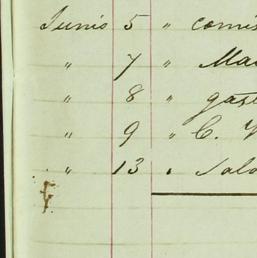 Junio 5 " comis
" 7 " Ma
" 8 " gas
" 9 " C.
" 13 "